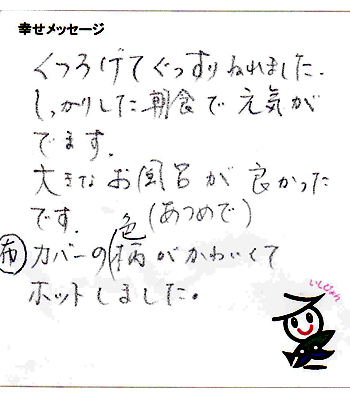 幸せメッセージ
くつろげてぐっすりねれました.
しっかりした朝食で元気が
でます.
大きなお風呂が良かった
です. (あつめで)
色
布 カバーの(柄がかわいくて
ホットしました。